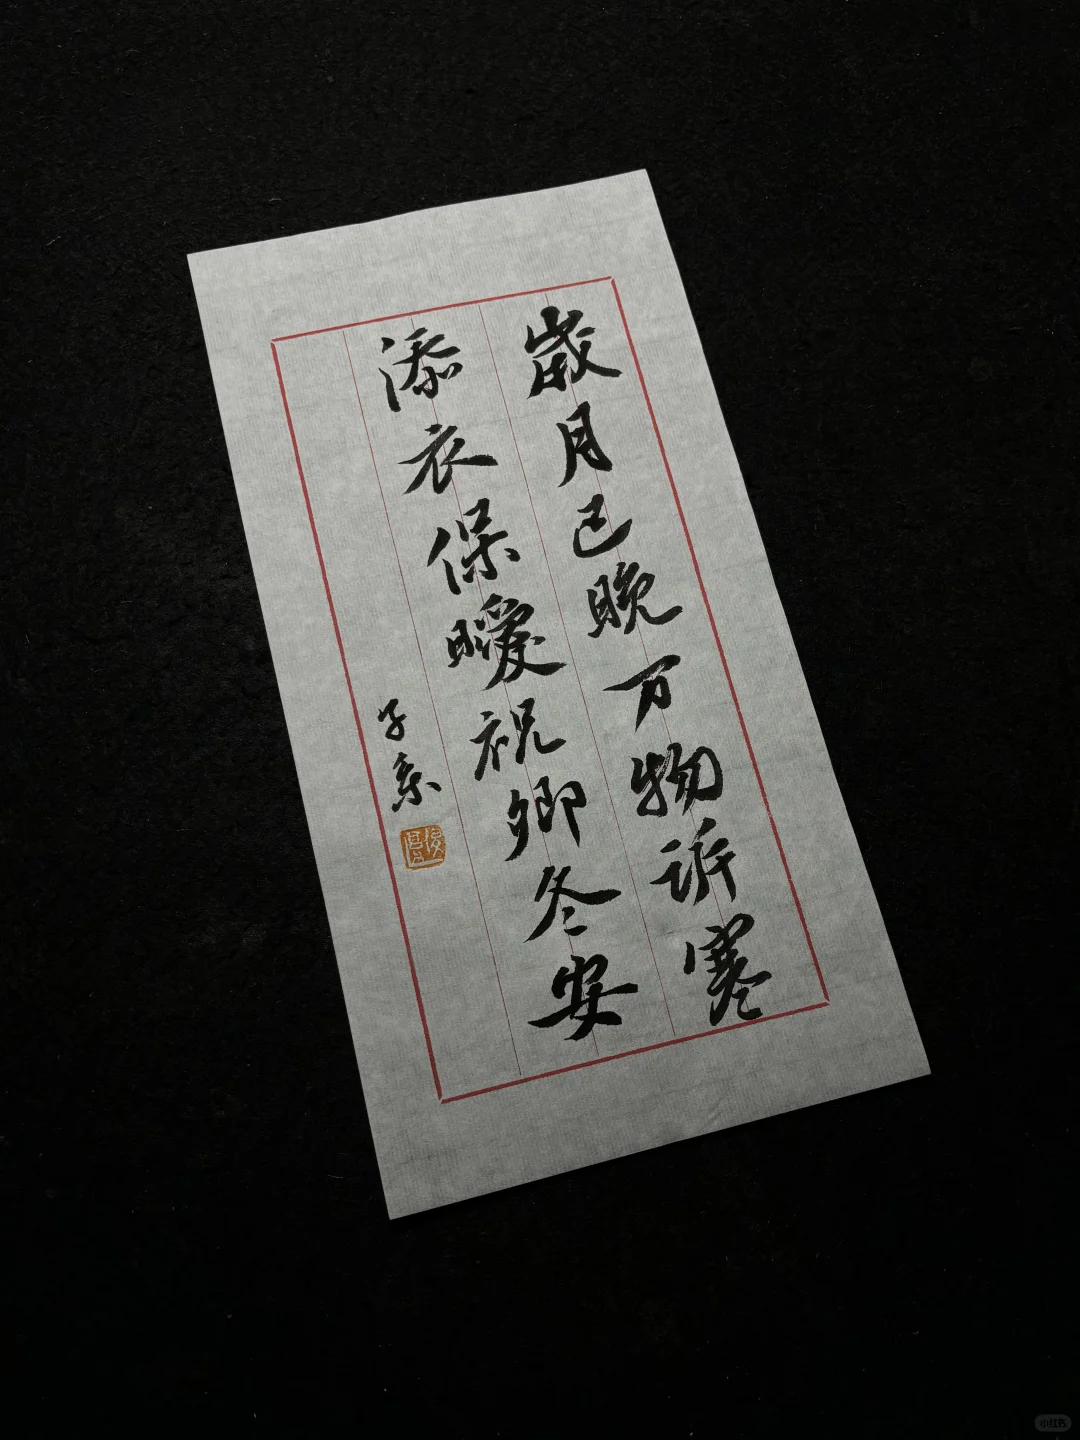 歲月已晚万物诉寒
添衣保暖祝卿冬安
子素
小红书